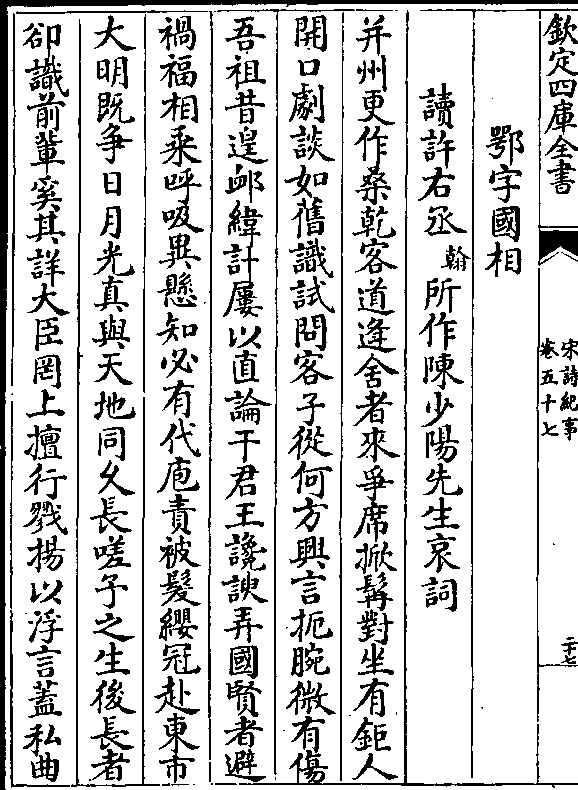 欽定四庫全書
宋詩紀事
卷五十七
二十七
鄂字國相
讀許右丞翰所作陳少陽先生哀詞
并州更作桑乾客道逢舍者來爭席掀髯對坐有鉅人
開口劇談如舊識試問客子從何方興言扼腕微有傷
吾祖昔遑邺緯計屢以直論干君王讒諛弄國賢者避
禍福相乘呼吸異懸知必有代庖責被髮纓冠赴東市
大明既爭日月光真與天地同久長嗟予之生後長者
卻識前輩奚其詳大臣罔上擅行戮揚以浮言蓋私曲